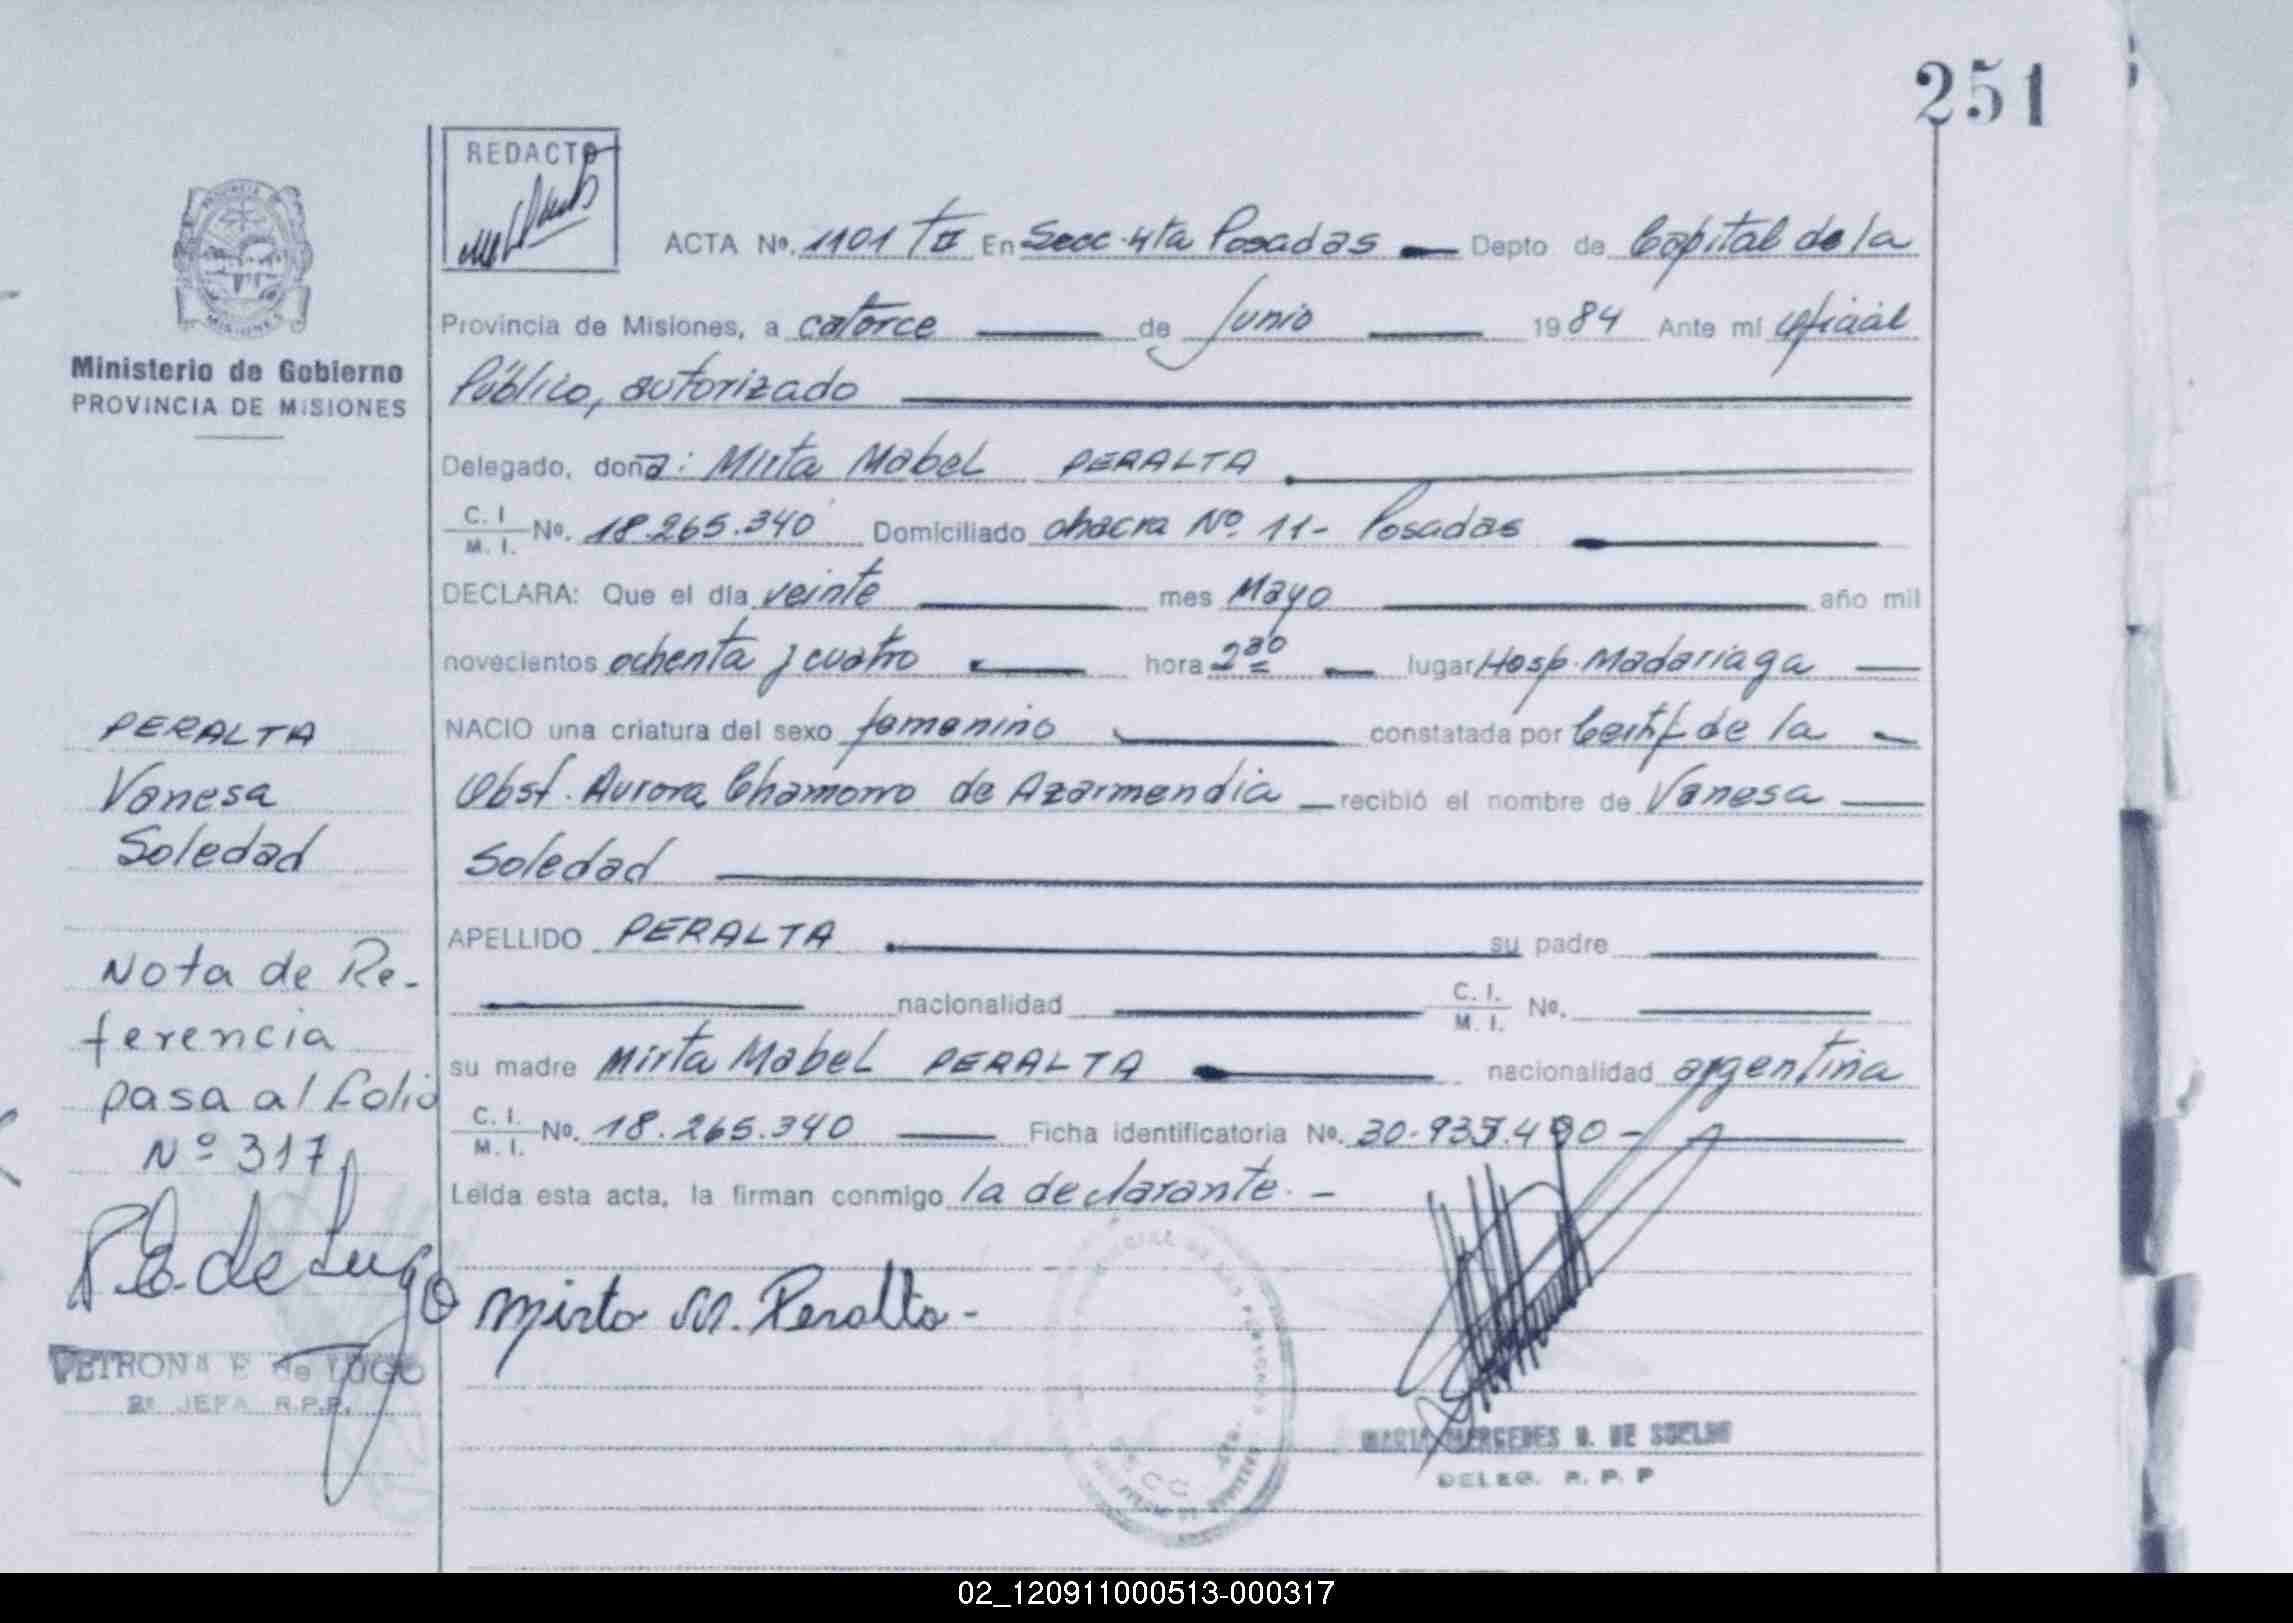 251
REDACTO
ACTA Nº. 1101 TII En Secc. 4ta Posadas Depto de Capital de la
Provincia de Misiones, a catorce de Junio 1984 Ante mí Oficial
Público, autorizado
Delegado, doña: Mirta Mabel PERALTA
C. I. M. I. Nº. 18.265.340 Domiciliado chacra Nº 11 - Posadas
DECLARA: Que el día veinte mes Mayo año mil
novecientos ochenta y cuatro hora 2 30 lugar Hosp. Madariaga
NACIO una criatura del sexo femenino constatada por Certif de la
Obst. Aurora Chamorro de Azarmendia recibió el nombre de Vanesa
Soledad
APELLIDO PERALTA su padre
nacionalidad C. I. M. I. Nº.
su madre Mirta Mabel PERALTA nacionalidad argentina
C. I. M. I. Nº. 18.265.340 Ficha identificatoria Nº.
Leída esta acta, la firman conmigo la declarante. -
Mirta M. Peralta -
MARIA MERCEDES DE
DELEG. R. P. P
Ministerio de Gobierno
PROVINCIA DE MISIONES
PERALTA
Vanesa
Soledad
Nota de Re-
ferencia
pasa al folio
Nº 317
P. E. de Lugo
PETRONA E de LUGO
2ª JEFA R.P.P.
02_120911000513-000317